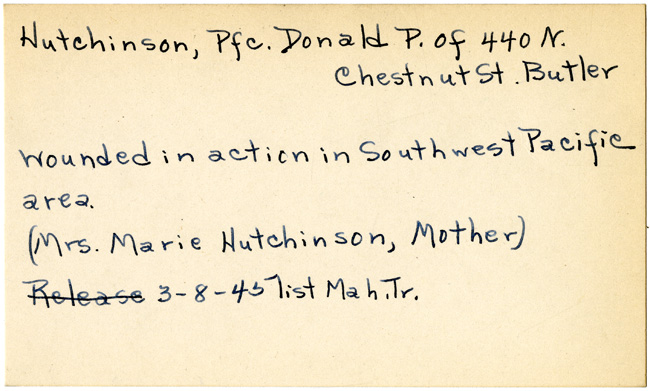 Hutchinson, Pfc. Donald P. of 440 N.
Chestnut St. Butler
wounded in action in Southwest Pacific
area.
(Mrs. Marie Hutchinson, Mother)
Release 3-8-45 list Mah. Tr.